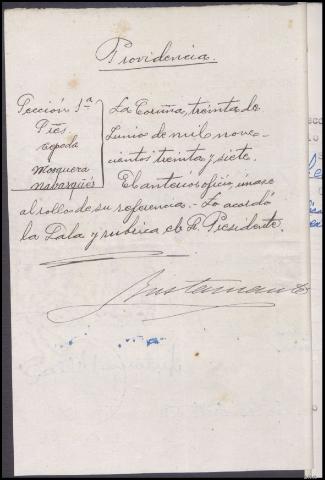 Providencia.
Sección 1ª
Tres.
Cepeda
Mosquera
Navarqués
La Coruña, treinta de
Junio de mil nove-
cientos treinta y siete.
El anterior oficio, únase
al rollo de su referencia.- Lo acordó
la Sala y rubrica el Sr. Presidente.
Bustamante